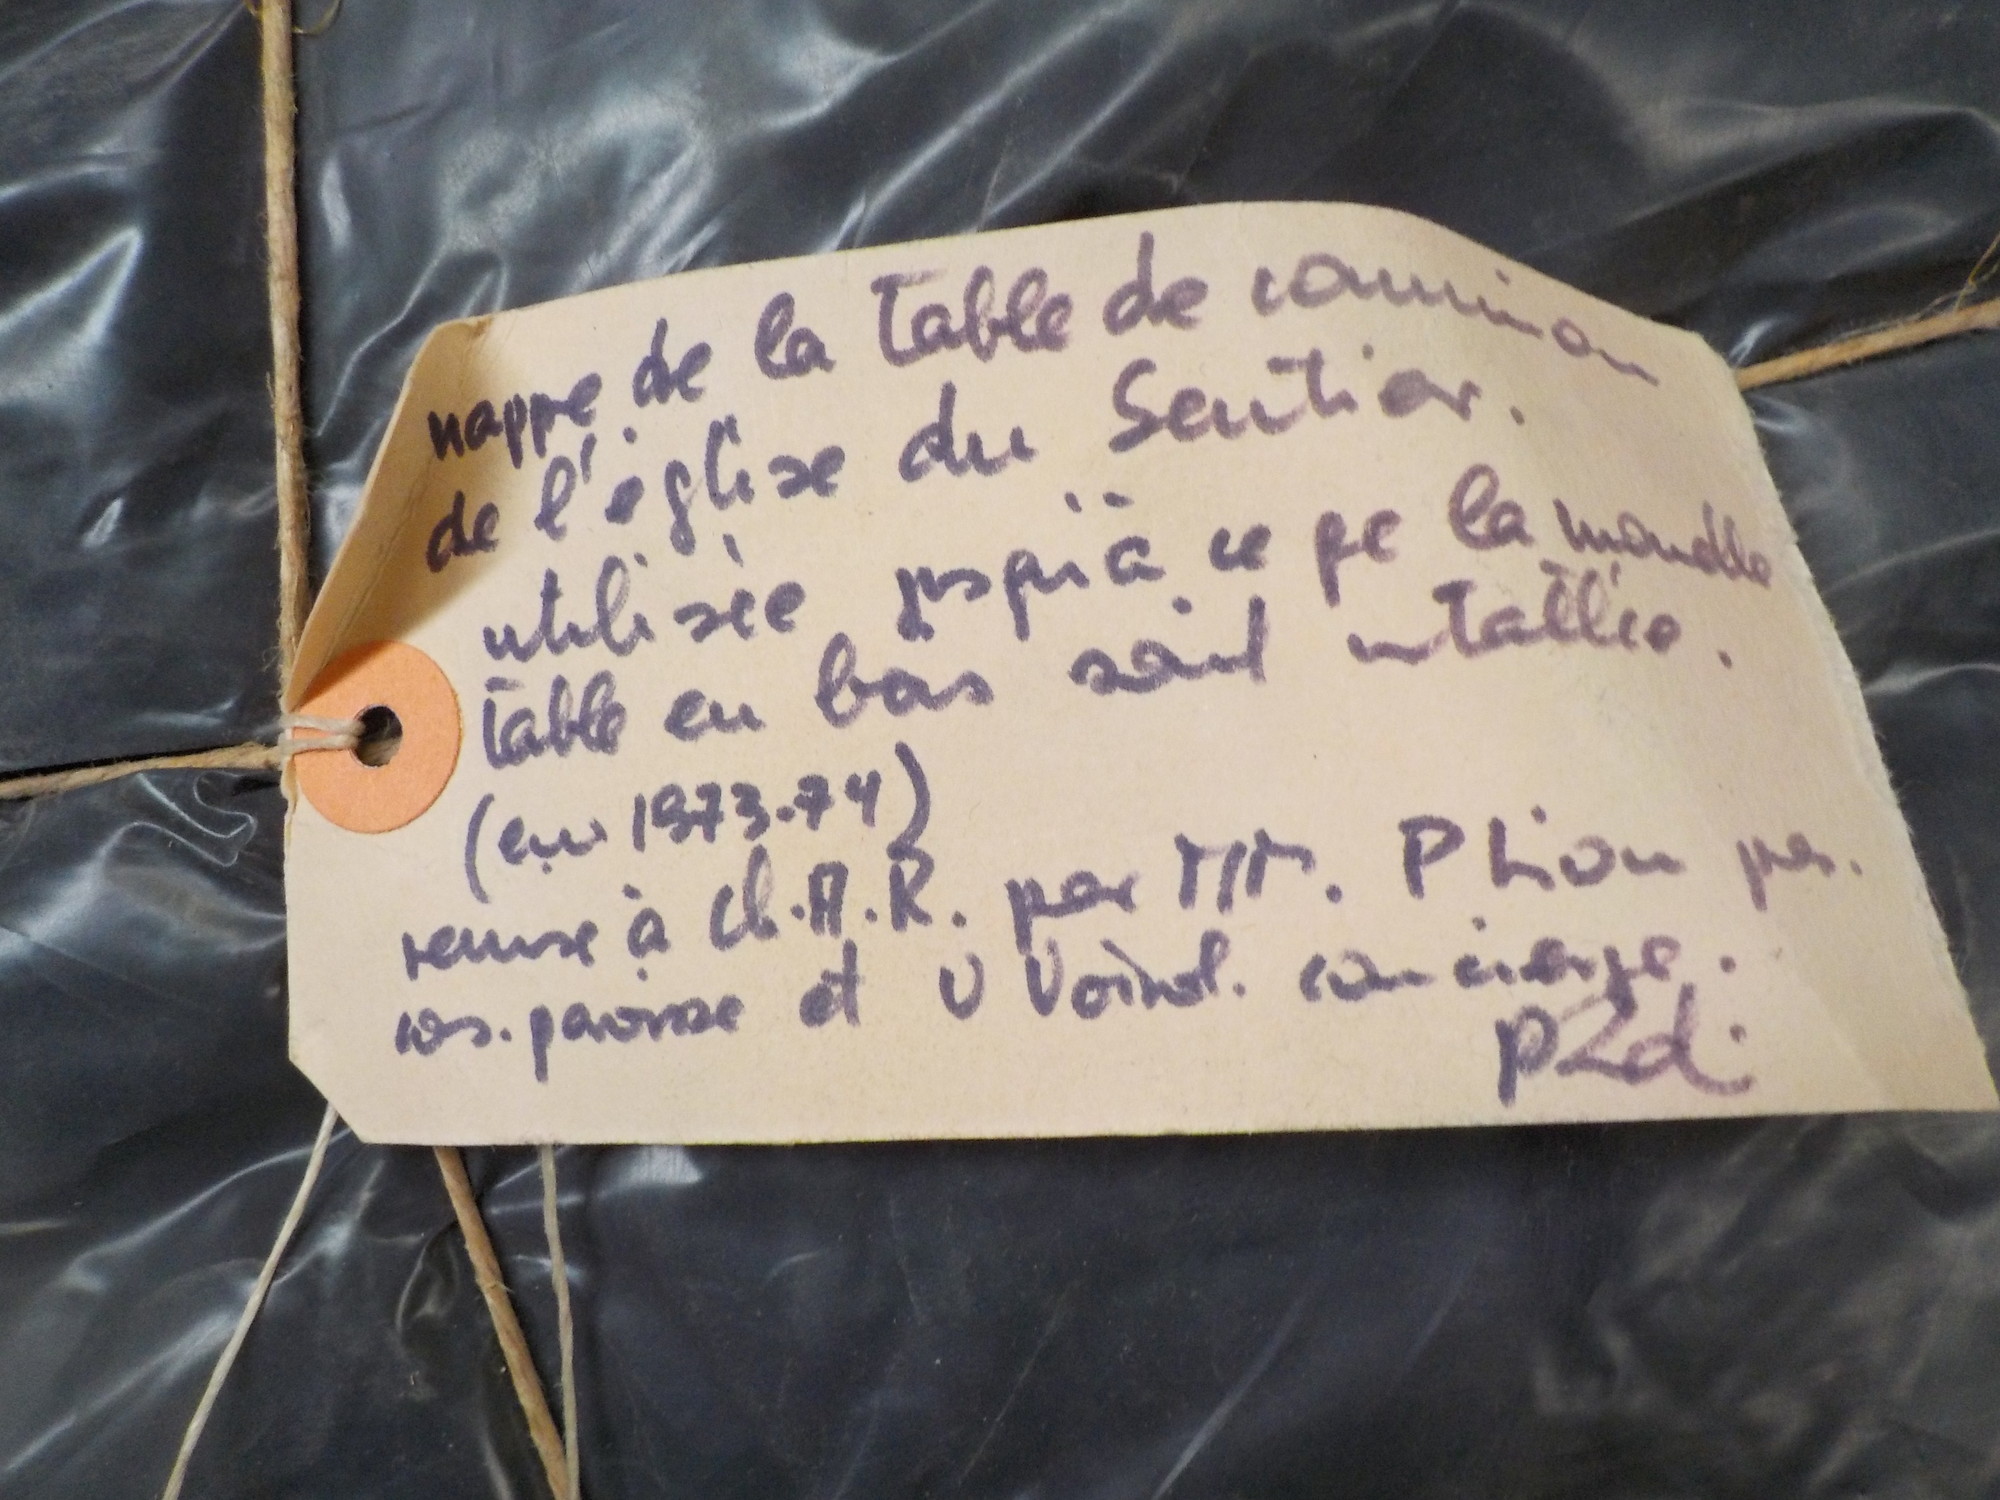 nappe de la Table de communion
de l'église du Sentier.
utilisée jusqu'à ce que la nouvelle
table en bois soit installée.
(env 1973-74)
remise à Ch.A.R. par MM. P Lion pres.
cons. paroisse et V Voirol. concierge.